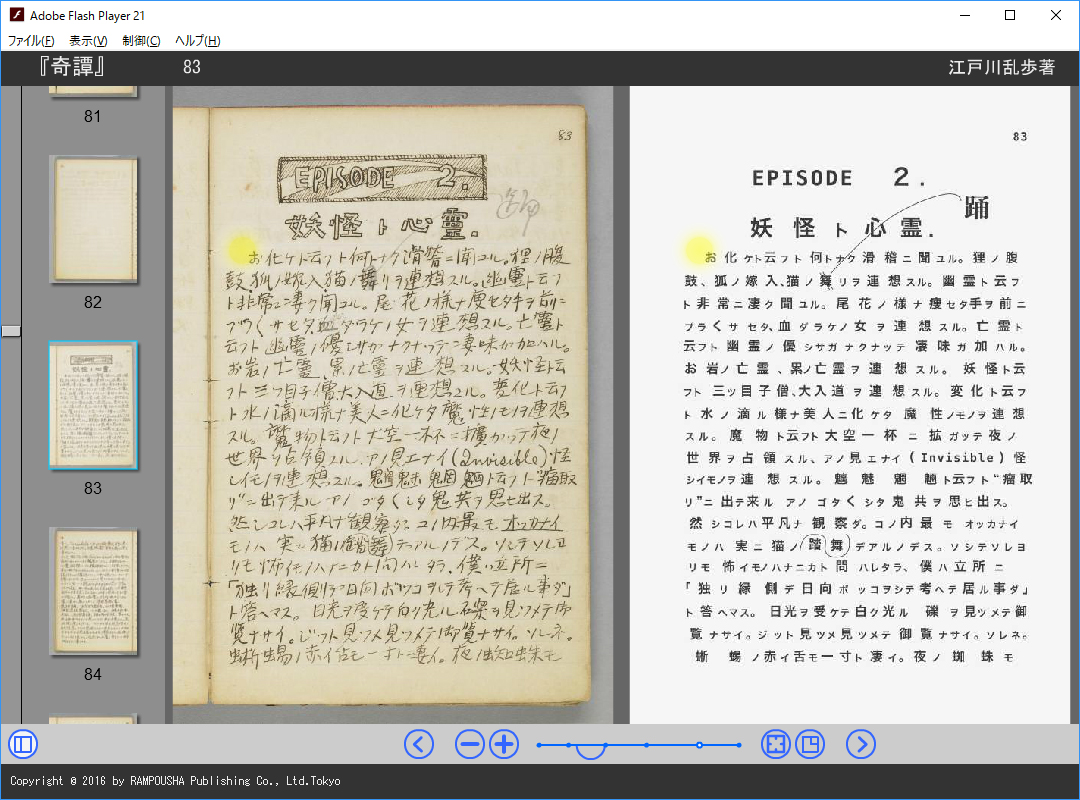 Adobe Flash Player 21
ファイル(F) 表示(V) 制御(C) ヘルプ(H)
『奇譚』 83 江戸川乱歩著
81
82
83
84
83
EPISODE 2.
妖怪ト心霊.
お化ケト云フト何トナク滑稽ニ聞ユル。狸ノ腹
鼓、狐ノ嫁入、猫ノ舞リヲ連想スル。幽霊ト云フ
ト非常ニ凄ク聞ユル。尾花ノ様ナ痩セタ手ヲ前ニ
ブラくサセタ、血ダラケノ女ヲ連想スル。亡霊ト
云フト幽霊ノ優シサガナクナッテ凄味ガ加ハル。
お岩ノ亡霊、累ノ亡霊ヲ連想スル。妖怪ト云
フト三ツ目子僧、大入道ヲ連想スル。変化ト云フ
ト水ノ滴ル様ナ美人ニ化ケタ魔性ノモノヲ連想
スル。魔物ト云フト大空一杯ニ拡ガッテ夜ノ
世界ヲ占領スル、アノ見エナイ(Invisible)怪
シイモノヲ連想スル。魑魅魍魎ト云フト“瘤取
リ”ニ出テ来ルアノゴタくシタ鬼共ヲ思ヒ出ス。
然シコレハ平凡ナ観察ダ。コノ内最モオッカナイ
モノハ実ニ猫ノ踏舞デアルノデス。ソシテソレヨ
リモ怖イモノハナニカト問ハレタラ、僕ハ立所ニ
83
EPISODE 2.
踊
妖怪ト心霊.
お化ケト云フト何トナク滑稽ニ聞ユル。狸ノ腹
鼓、狐ノ嫁入、猫ノ舞リヲ連想スル。幽霊ト云フ
ト非常ニ凄ク聞ユル。尾花ノ様ナ痩セタ手ヲ前ニ
ブラくサセタ、血ダラケノ女ヲ連想スル。亡霊ト
云フト幽霊ノ優シサガナクナッテ凄味ガ加ハル。
お岩ノ亡霊、累ノ亡霊ヲ連想スル。妖怪ト云
フト三ッ目子僧、大入道ヲ連想スル。変化ト云フ
ト水ノ滴ル様ナ美人ニ化ケタ魔性ノモノヲ連想
スル。魔物ト云フト大空一杯ニ拡ガッテ夜ノ
世界ヲ占領スル、アノ見エナイ(Invisible)怪
シイモノヲ連想スル。魑魅魍魎ト云フト“瘤取
リ”ニ出テ来ルアノゴタくシタ鬼共ヲ思ヒ出ス。
然シコレハ平凡ナ観察ダ。コノ内最モオッカナイ
モノハ実ニ猫ノ踏舞デアルノデス。ソシテソレヨ
リモ怖イモノハナニカト問ハレタラ、僕ハ立所ニ
「独リ縁側デ日向ボッコヲシテ考ヘテ居ル事ダ」
ト答ヘマス。日光ヲ受ケテ白ク光ル礫ヲ見ツメテ御
覧ナサイ。ジット見ツメ見ツメテ御覧ナサイ。ソレネ。
蜥蜴ノ赤イ舌モ一寸ト凄イ。夜ノ蜘蛛モ
Copyright © 2016 by RAMPOUSHA Publishing Co., Ltd.Tokyo